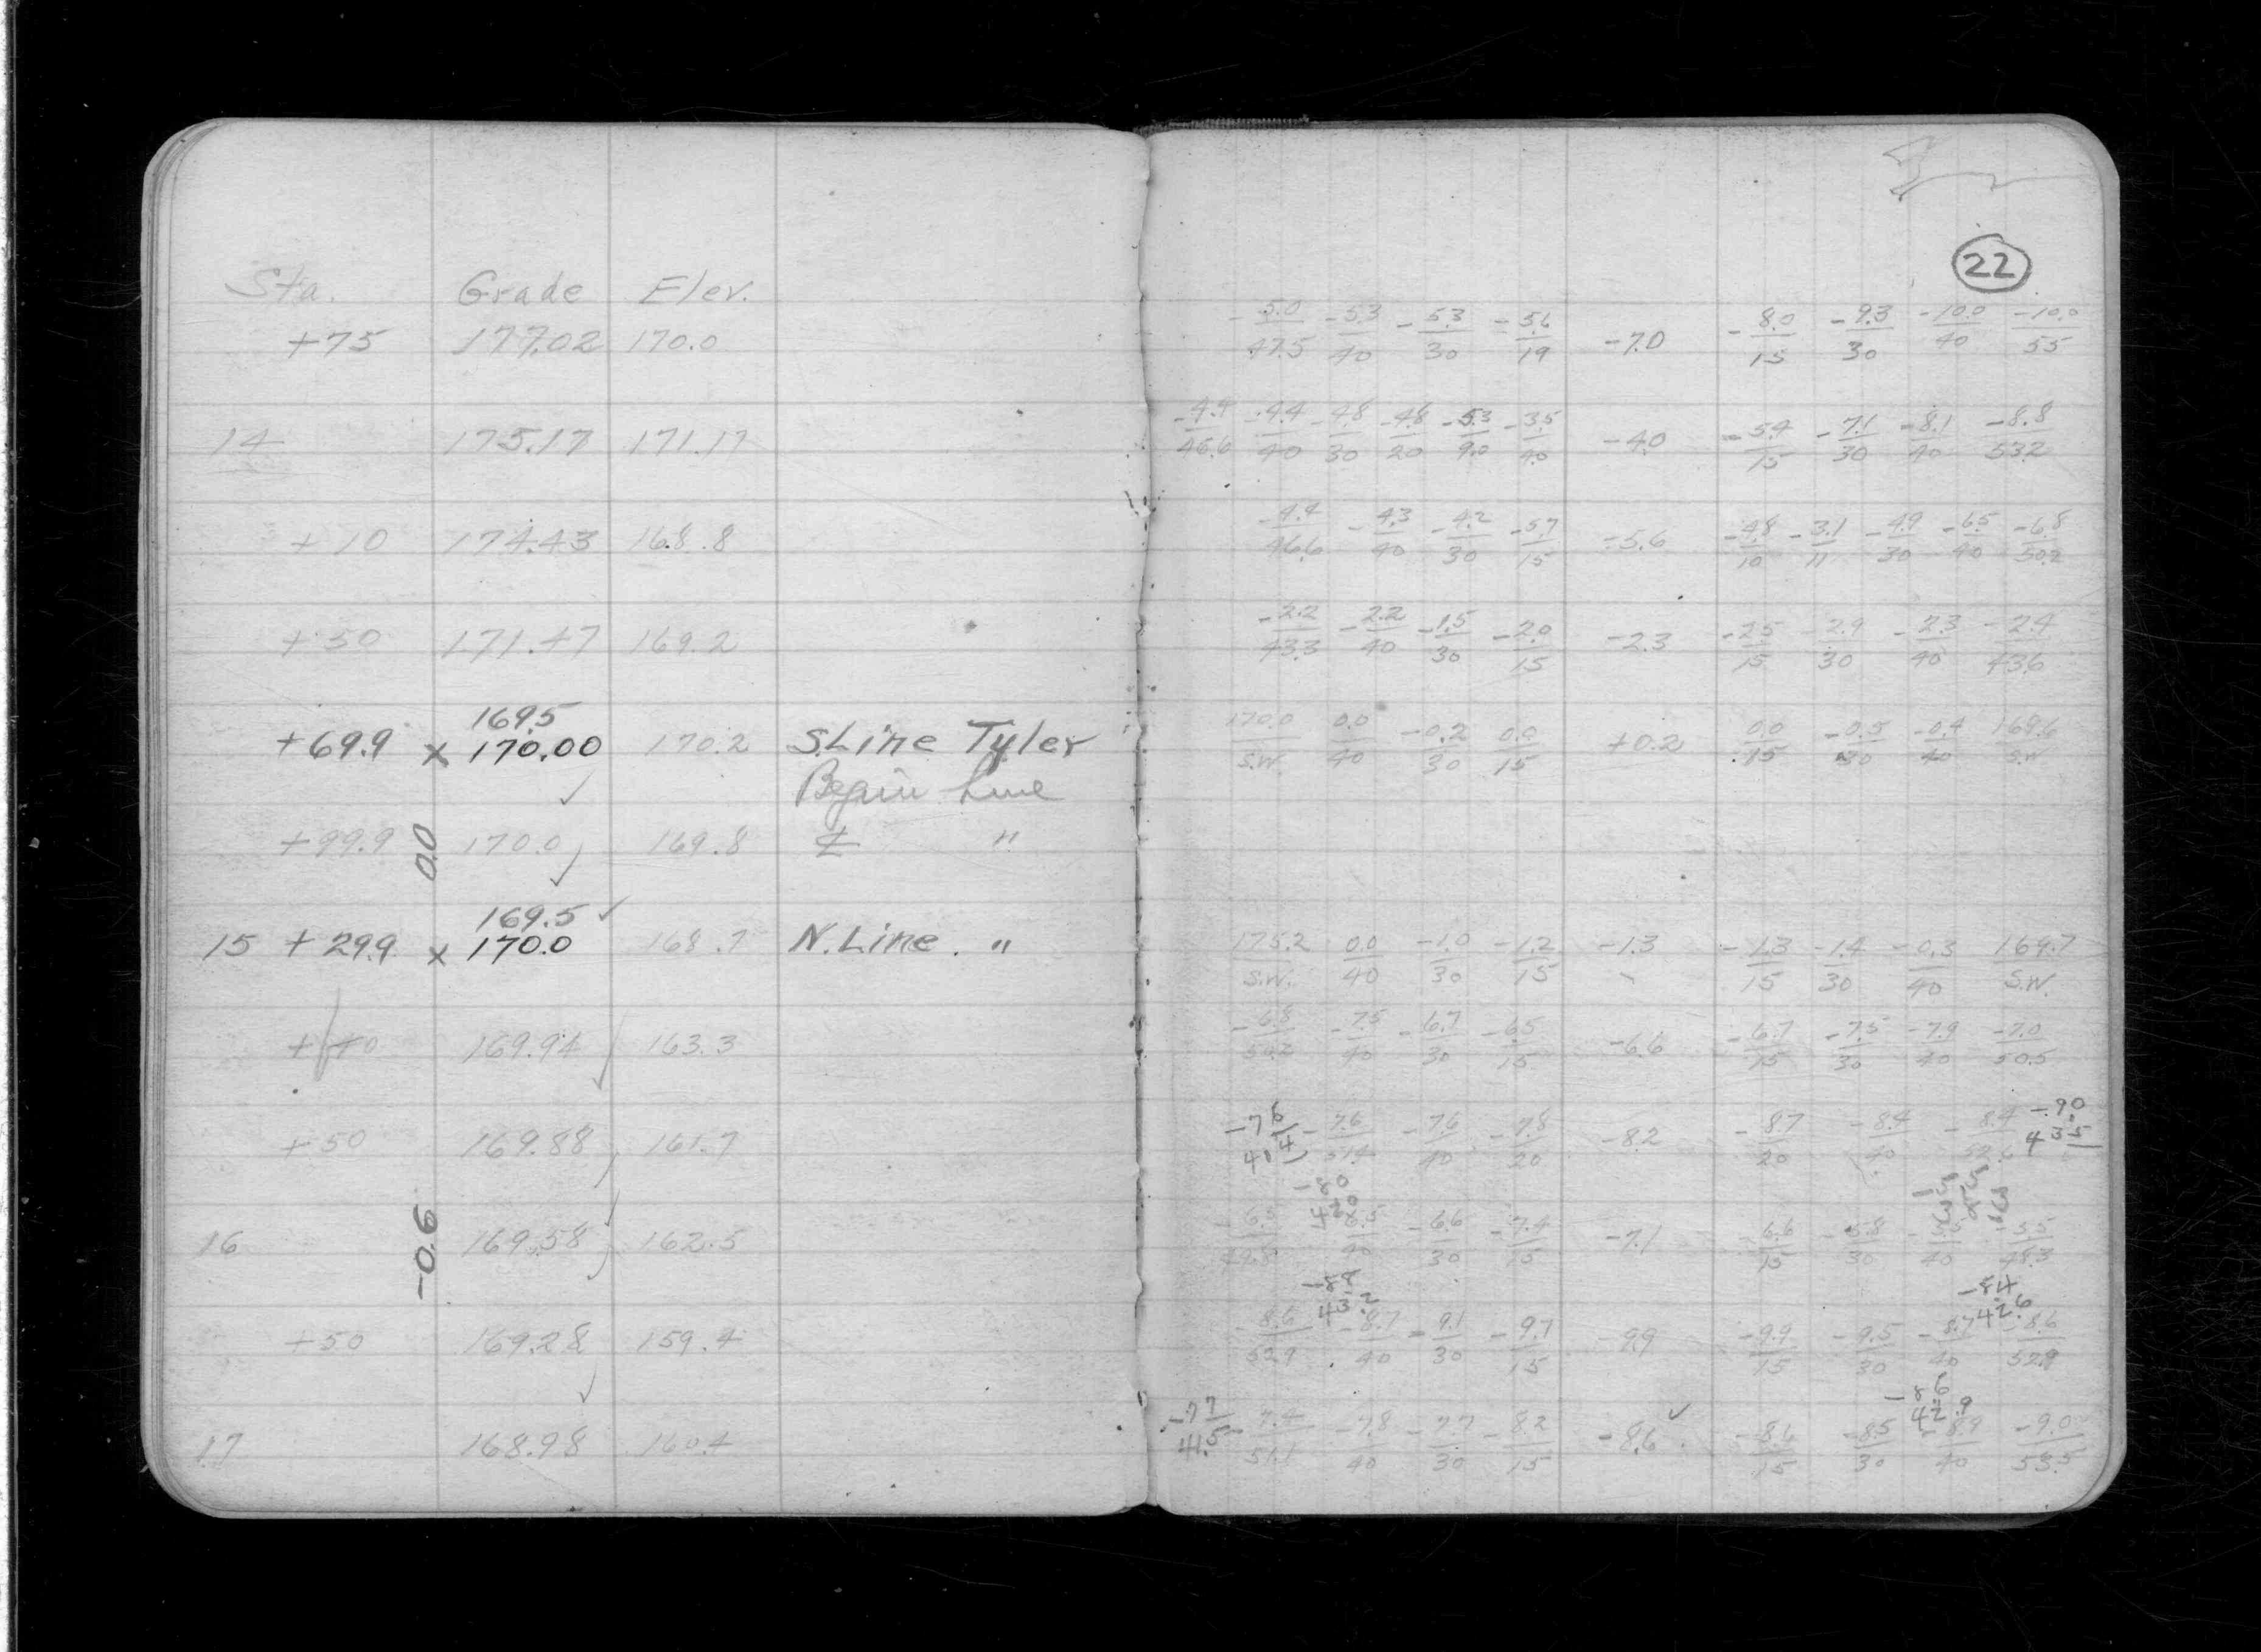 22
Sta. Grade Elev.
+75 177.02 170.0
14 175.17 171.17
+10 174.43 168.8
+50 171.47 169.2
169.5
+69.9 x 170.00 170.2 S.Line Tyler
Begin Line
+99.9 0.0 170.0 169.8 ℄ "
169.5 ✓
15 +29.9 x 170.0 168.7 N.Line. "
+40 169.94 163.3
+50 169.88 161.7
16 -0.6 169.58 162.5
+50 169.28 159.4
17 168.98 160.4
-5.0/47.5 -5.3/40 -5.3/30 -5.6/19 -7.0 -8.0/15 -9.3/30 -10.0/40 -10.0/55
-4.4/46.6 -4.4/40 -4.8/30 -4.8/20 -5.3/9.0 -3.5/4.0 -4.0 -5.4/15 -7.1/30 -8.1/40 -8.8/53.2
-4.4/46.6 -4.3/40 -4.2/30 -5.7/15 -5.6 -4.8/10 -3.1/11 -4.9/30 -6.5/40 -6.8/50.2
-2.2/43.3 -2.2/40 -1.5/30 -2.0/15 -2.3 -2.5/15 -2.9/30 -2.3/40 -2.4/43.6
170.0/S.W. 0.0/40 -0.2/30 0.0/15 +0.2 0.0/15 -0.5/30 -0.4/40 169.6/S.W.
175.2/S.W. 0.0/40 -1.0/30 -1.2/15 -1.3 -1.3/15 -1.4/30 -0.3/40 169.7/S.W.
-6.8/50.2 -7.5/40 -6.7/30 -6.5/15 -6.6 -6.7/15 -7.5/30 -7.9/40 -7.0/50.5
-7.6/41.4 -7.6/51.4 -7.6/40 -7.8/20 -8.2 -8.7/20 -8.4/40 -8.4/52.6 -9.0/43.5
-8.0/42.0
-6.5/40 -6.6/30 -7.4/15 -7.1 -6.6/15 -5.8/30 -5.5/40 -5.5/48.3
-8.8/43.2 -8.4/42.6
-8.6/52.9 -8.7/40 -9.1/30 -9.7/15 -9.9 -9.9/15 -9.5/30 -8.7/40 -8.6/52.9
-8.6/42.9
-7.7/41.5 -7.4/51.1 -7.8/40 -7.7/30 -8.2/15 -8.6 ✓ -8.6/15 -8.5/30 -8.9/40 -9.0/53.5